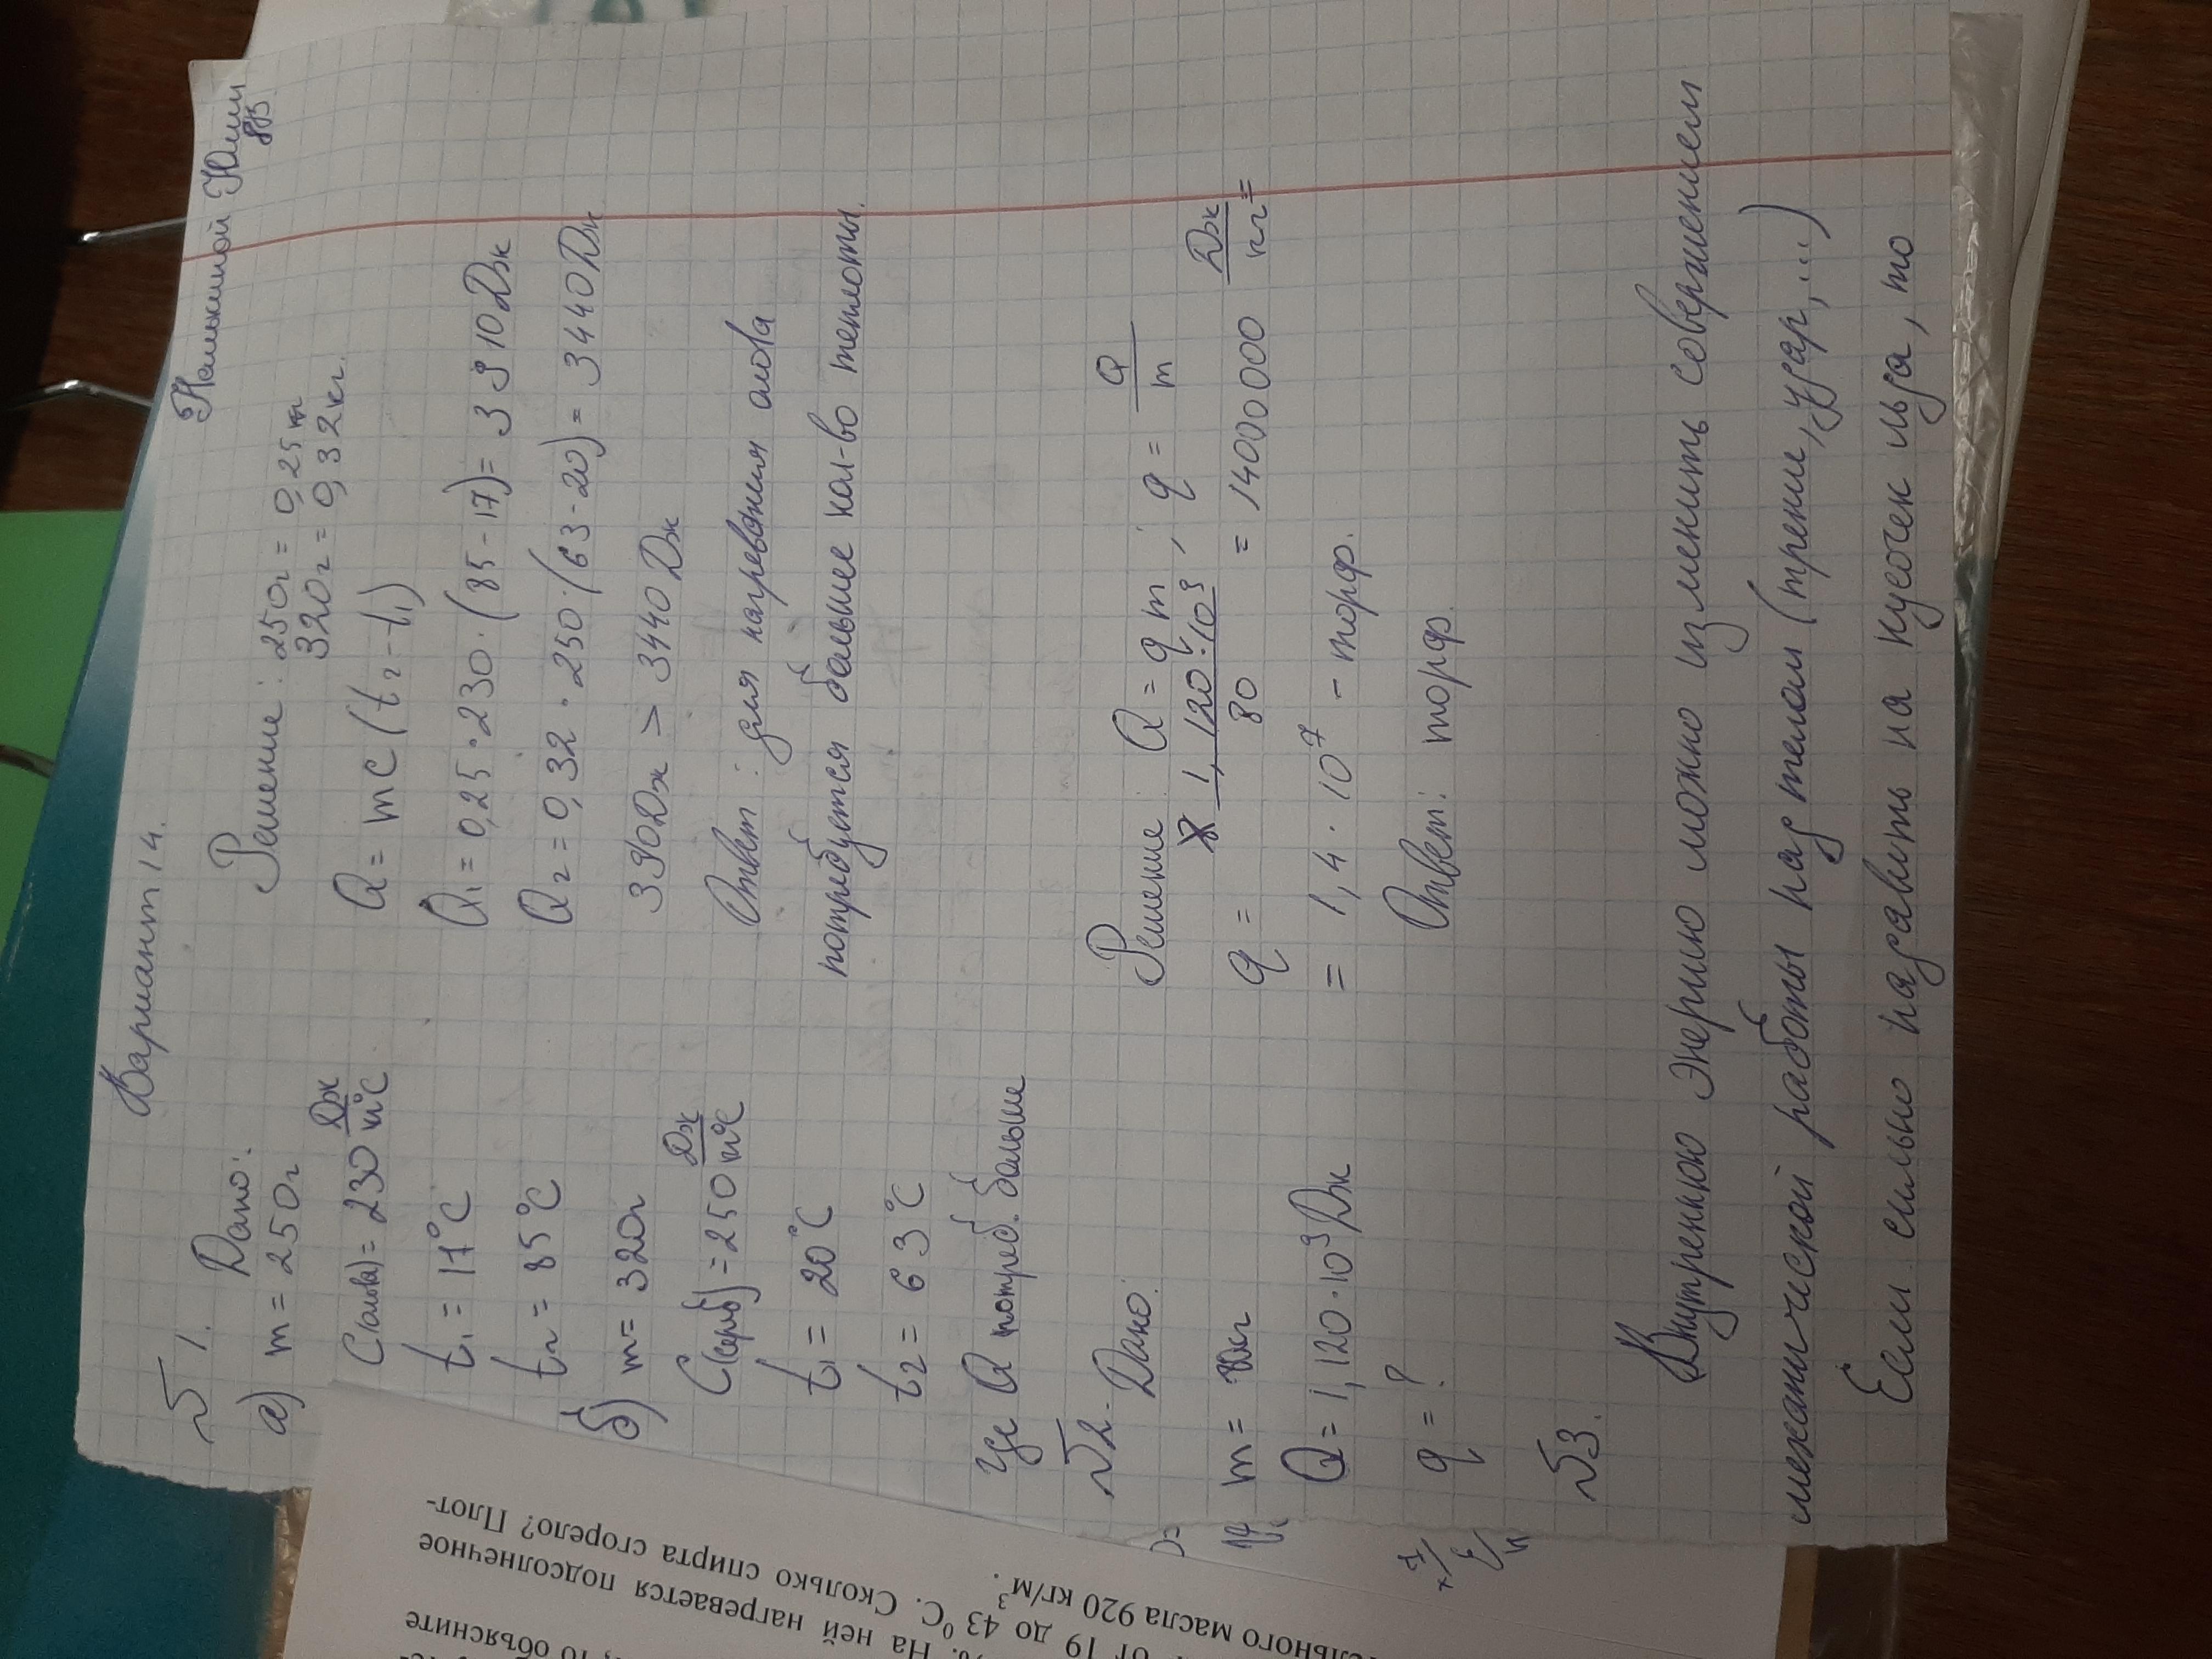 Вариант 14.
8В
№1.
Дано:
а) m = 250г
C(олова) = 230 Дж/кг°С
t₁ = 17°C
t₂ = 85°C
б) m = 320г
C(сереб) = 250 Дж/кг°С
t₁ = 20°C
t₂ = 63°C
где Q потреб. больше
Решение: 250г = 0,25
320г = 0,32кг.
Q = mc(t₂ - t₁)
Q₁ = 0,25 · 230 · (85 - 17) = 3910Дж
Q₂ = 0,32 · 250 · (63 - 20) = 3440Дж
3910Дж > 3440Дж
Ответ: для нагревания олова
потребуется большее кол-во теплоты.
№2. Дано:
m =
Q = 1,120·10⁹Дж
q = ?
Решение: Q = qm; q = Q/m
q = 1,120·10⁹/80 = 14000000 Дж/кг =
= 1,4 · 10⁷ - торф.
Ответ: торф.
№3.
Внутреннюю энергию можно изменить совершением
механической работы над телом (трение, удар, ...)
Если сильно надавить на кусочек льда, то
ельного масла 920 кг/м³.
от 19 до 43 °С. Сколько спирта сгорело? Плот-
%. На ней нагревается подсолнечное
то объясните